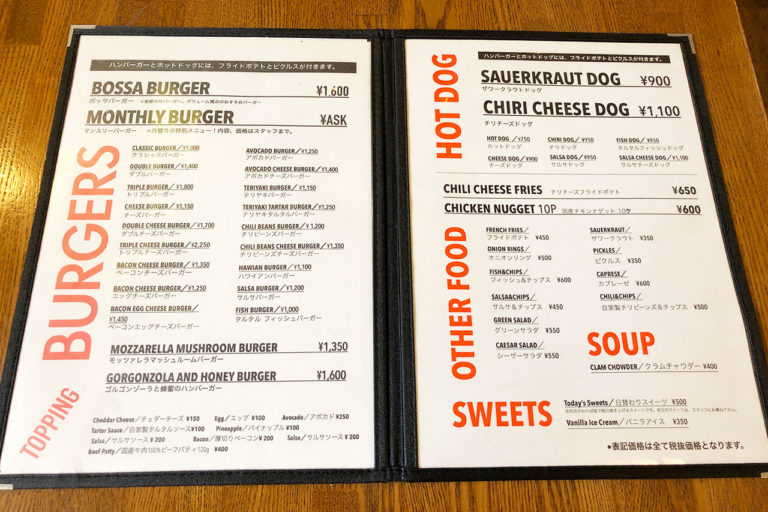 ハンバーガーとホットドッグには、フライドポテトとピクルスが付きます。
BOSSA BURGER ¥1,600
ボッサバーガー
MONTHLY BURGER ¥ASK
マンスリーバーガー ＊月替りの特別メニュー！内容、価格はスタッフまで。
BURGERS
CLASSIC BURGER／¥1,000
クラシックバーガー
DOUBLE BURGER／¥1,400
ダブルバーガー
TRIPLE BURGER／¥1,800
トリプルバーガー
CHEESE BURGER／¥1,150
チーズバーガー
DOUBLE CHEESE BURGER／¥1,700
ダブルチーズバーガー
TRIPLE CHEESE BURGER／¥2,250
トリプルチーズバーガー
BACON CHEESE BURGER／¥1,350
ベーコンチーズバーガー
BACON CHEESE BURGER／¥1,250
エッグチーズバーガー
BACON EGG CHEESE BURGER／
¥1,450
ベーコンエッグチーズバーガー
AVOCADO BURGER／¥1,250
アボカドバーガー
AVOCADO CHEESE BURGER／¥1,400
アボカドチーズバーガー
TERIYAKI BURGER／¥1,150
テリヤキバーガー
TERIYAKI TARTAR BURGER／¥1,250
テリヤキタルタルバーガー
CHILI BEANS BURGER／¥1,200
チリビーンズバーガー
CHILI BEANS CHEESE BURGER／¥1,350
チリビーンズチーズバーガー
HAWIAN BURGER／¥1,100
ハワイアンバーガー
SALSA BURGER／¥1,200
サルサバーガー
FISH BURGER／¥1,000
タルタル フィッシュバーガー
MOZZARELLA MUSHROOM BURGER ¥1,350
モッツァレラマッシュルームバーガー
GORGONZOLA AND HONEY BURGER ¥1,600
ゴルゴンゾーラと蜂蜜のハンバーガー
TOPPING
Cheddar Cheese／チェダーチーズ ¥150 Egg／エッグ ¥100 Avocado／アボカド ¥250
Tartar Sauce／自家製タルタルソース¥100 Pineapple／パイナップル ¥100
Salsa／サルサソース ¥200 Bacon／厚切りベーコン¥200 Salsa／サルサソース ¥200
Beef Patty／国産牛肉100%ビーフパティ120g ¥400
ハンバーガーとホットドッグには、フライドポテトとピクルスが付きます。
HOT DOG
SAUERKRAUT DOG ¥900
ザワークラウトドッグ
CHIRI CHEESE DOG ¥1,100
チリチーズドッグ
HOT DOG／¥750
ホットドッグ
CHIRI DOG／¥950
チリドッグ
FISH DOG／¥950
タルタルフィッシュドッグ
CHEESE DOG／¥900
チーズドッグ
SALSA DOG／¥950
サルサドッグ
SALSA CHEESE DOG／¥1,100
サルサチーズドッグ
CHILI CHEESE FRIES チリチーズフライドポテト ¥650
CHICKEN NUGGET 10P 国産チキンナゲット 10ケ ¥600
OTHER FOOD
FRENCH FRIES／
フライドポテト ¥450
ONION RINGS／
オニオンリング ¥500
FISH&CHIPS／
フィッシュ&チップス ¥600
SALSA&CHIPS／
サルサ&チップス ¥450
GREEN SALAD／
グリーンサラダ ¥550
CAESAR SALAD／
シーザーサラダ ¥550
SAUERKRAUT／
ザワークラウト ¥350
PICKLES／
ピクルス ¥350
CAPRESE／
カプレーゼ ¥600
CHILI&CHIPS／
自家製チリビーンズ&チップス ¥500
SOUP
CLAM CHOWDER／クラムチャウダー ¥400
SWEETS
Today's Sweets／日替わりスイーツ ¥500
Vanilla Ice Cream／バニラアイス ¥350
●表記価格は全て税抜価格となります。